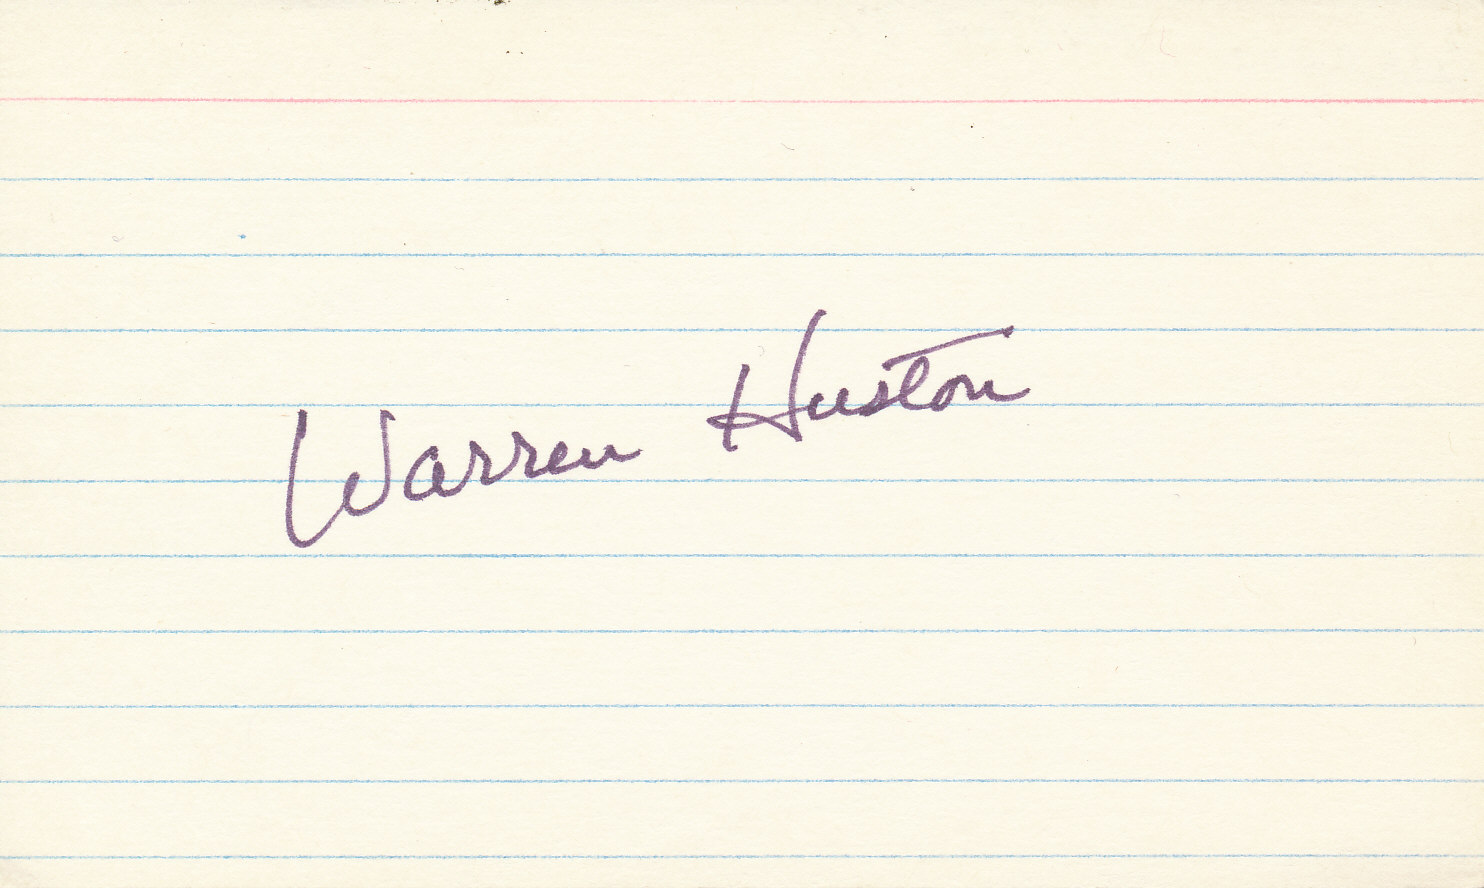 Warren Huston